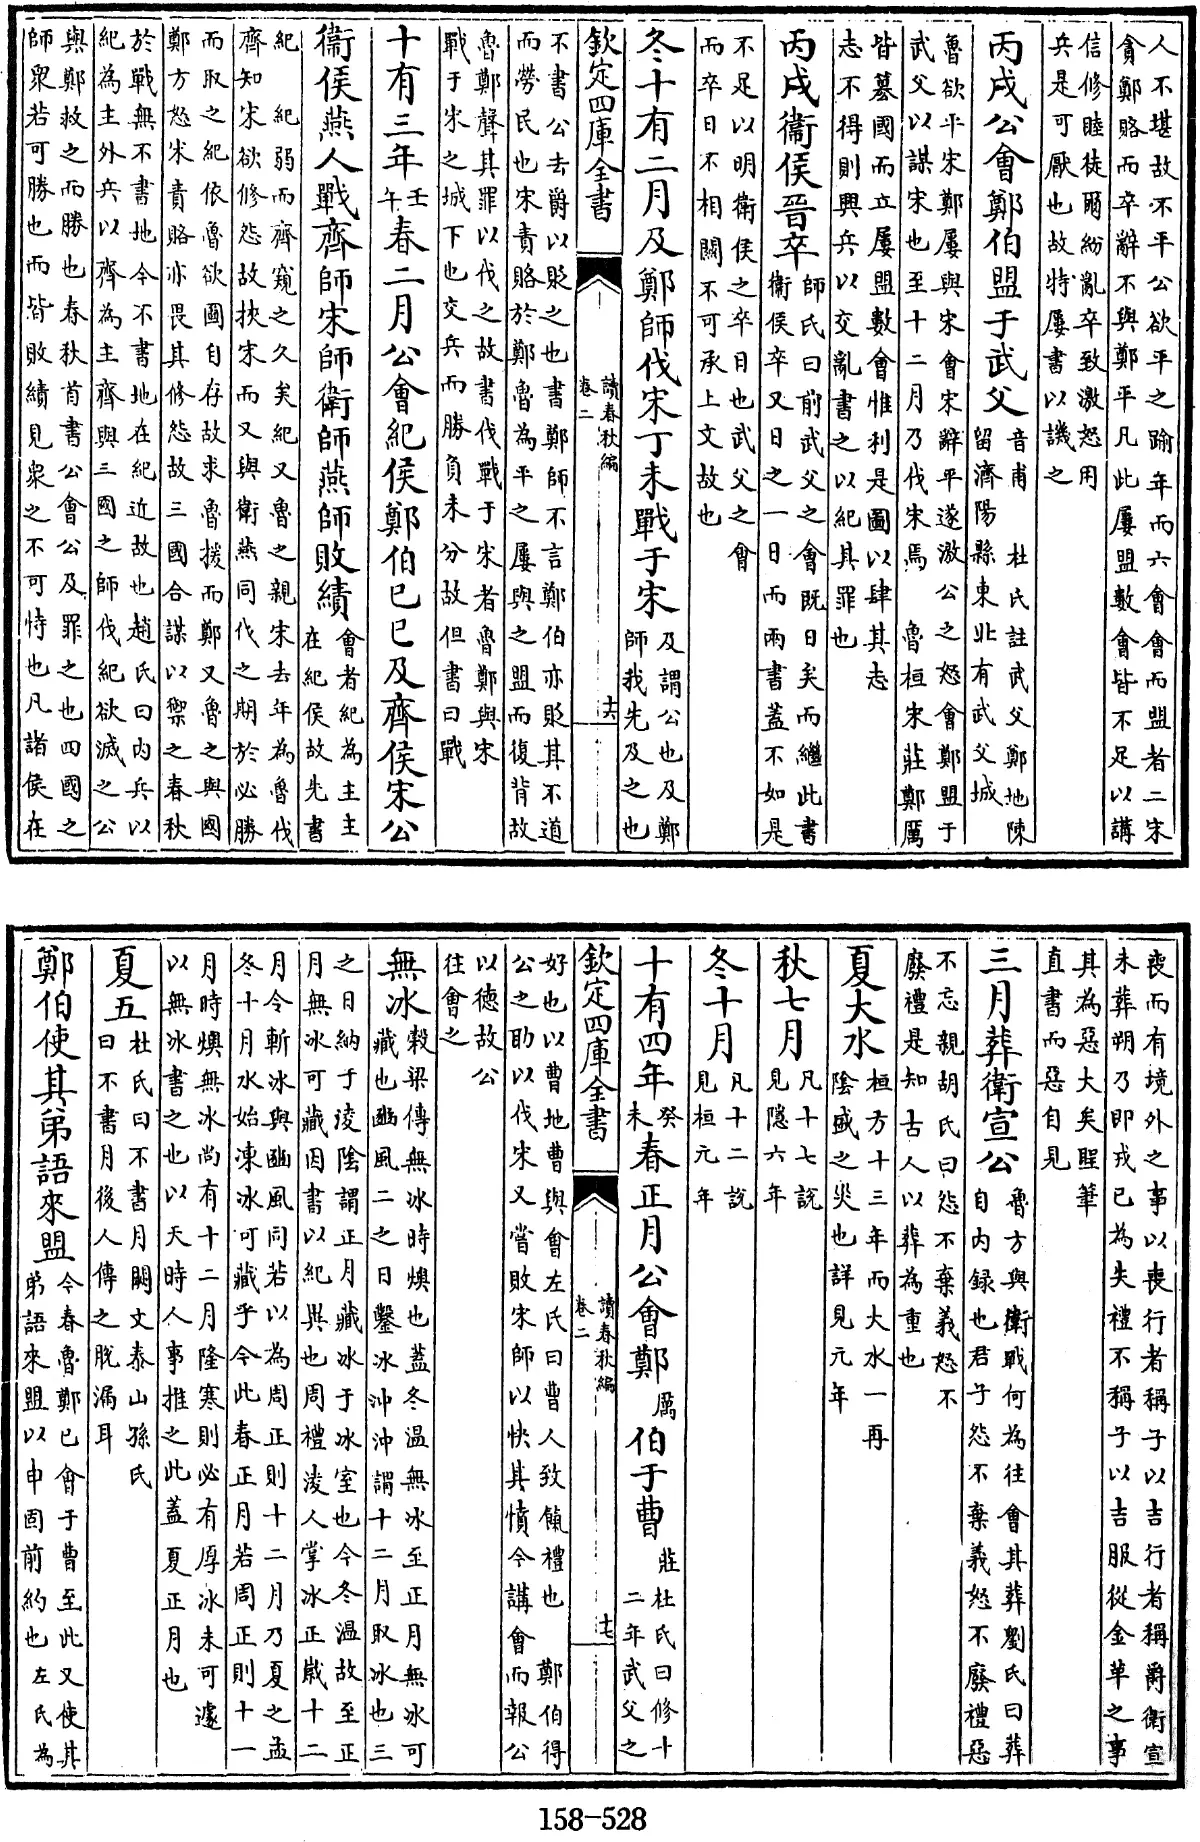 人不堪故不平公欲平之踰年而六會會而盟者二宋
貪鄭賂而卒辭不與鄭平凡此屢盟數會皆不足以講
信修睦徒爾紛亂卒致激怒用
兵是可厭也故特屢書以譏之
丙戌公會鄭伯盟于武父
音甫 杜氏註武父鄭地陳
留濟陽縣東北有武父城
魯欲平宋鄭屢與宋會宋辭平遂激公之怒會鄭盟于
武父以謀宋也至十二月乃伐宋焉 魯桓宋莊鄭厲
皆篡國而立屢盟數會惟利是圖以肆其志
志不得則興兵以交亂書之以紀其罪也
丙戌衞侯晉卒
師氏曰前武父之會既日矣而繼此書
衞侯卒又日之一日而兩書蓋不如是
不足以明衞侯之卒日也武父之會
而卒日不相關不可承上文故也
冬十有二月及鄭師伐宋丁未戰于宋
及謂公也及鄭
師我先及之也
欽定四庫全書
讀春秋編
卷二
十六
不書公去爵以貶之也書鄭師不言鄭伯亦貶其不道
而勞民也宋責賂於鄭魯為平之屢與之盟而復背故
魯鄭聲其罪以伐之故書伐戰于宋者魯鄭與宋
戰于宋之城下也交兵而勝負未分故但書曰戰
十有三年
壬
午
春二月公會紀侯鄭伯己巳及齊侯宋公
衞侯燕人戰齊師宋師衛師燕師敗績
會者紀為主主
在紀侯故先書
紀 紀弱而齊窺之久矣紀又魯之親宋去年為魯伐
齊知宋欲修怨故挾宋而又與衛燕同伐之期於必勝
而取之紀依魯欲圖自存故求魯援而鄭又魯之與國
鄭方怒宋責賂亦畏其修怨故三國合謀以禦之春秋
於戰無不書地今不書地在紀近故也趙氏曰内兵以
紀為主外兵以齊為主齊與三國之師伐紀欲滅之公
與鄭救之而勝也春秋首書公會公及罪之也四國之
師衆若可勝也而皆敗績見衆之不可恃也凡諸侯在
喪而有境外之事以喪行者稱子以吉行者稱爵衛宣
未葬朔乃即戎已為失禮不稱子以吉服從金革之事
其為惡大矣聖筆
直書而惡自見
三月葬衛宣公
魯方與衛戰何為往會其葬劉氏曰葬
自内録也君子怨不棄義怒不廢禮惡
不忘親胡氏曰怨不棄義怒不
廢禮是知古人以葬為重也
夏大水
桓方十三年而大水一再
陰盛之災也詳見元年
秋七月
凡十七說
見隱六年
冬十月
凡十二說
見桓元年
十有四年
癸
未
春正月公會鄭
厲
伯于曹
莊杜氏曰修十
二年武父之
欽定四庫全書
讀春秋編
卷二
十七
好也以曹地曹與會左氏曰曹人致餼禮也 鄭伯得
公之助以伐宋又嘗敗宋師以快其憤今講會而報公
以德故公
往會之
無冰
穀梁傳無冰時燠也蓋冬温無冰至正月無冰可
藏也豳風二之日鑿冰沖沖謂十二月取冰也三
之日納于淩陰謂正月藏冰于冰室也今冬温故至正
月無冰可藏因書以紀異也周禮淩人掌冰正嵗十二
月令斬冰與豳風同若以為周正則十二月乃夏之孟
冬十月水始凍冰可藏乎今此春正月若周正則十一
月時燠無冰尚有十二月隆寒則必有厚冰未可遽
以無冰書之也以天時人事推之此蓋夏正月也
夏五
杜氏曰不書月闕文泰山孫氏
曰不書月後人傳之脱漏耳
鄭伯使其弟語來盟
今春魯鄭已會于曹至此又使其
弟語來盟以申固前約也左氏為
158-528